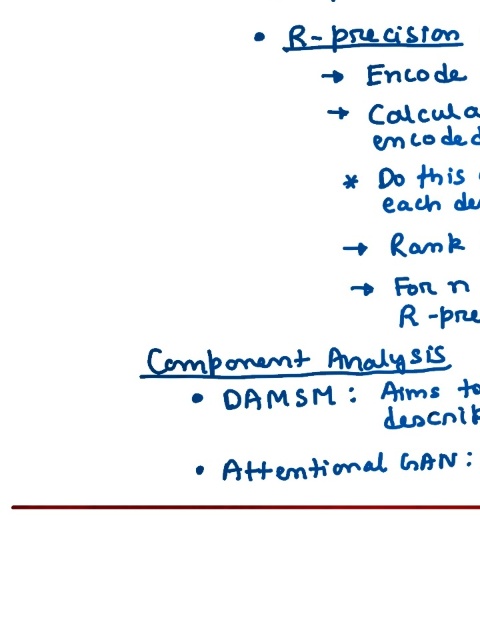 • R-precision
→ Encode
→ Calcula
encoded
* Do this
each de
→ Rank
→ For n
R-pre
Component Analysis
• DAMSM: Aims to
describ
• Attentional GAN: